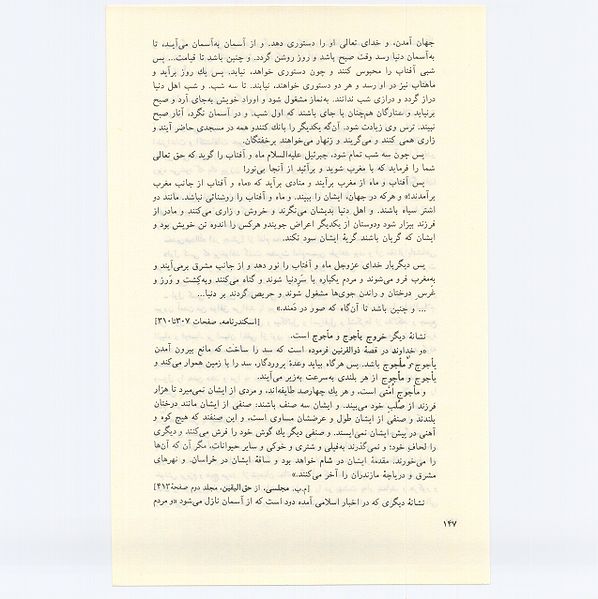 جهان آمدن، و خدای تعالی او را دستوری دهد. و از آسمان به‌آسمان می‌آیـد، تا
به‌آسمان دنیا رسد وقت صبح باشد و روز روشن گردد. و چنین باشد تا قیامت... پس
شبی آفتاب را محبوس کنند و چون دستوری خواهد، نیابد. پس یك روز برآید و
ماهتاب نیز در او رسد و هر دو دستوری خواهند، نیابند. تا سه شب. و شب اهل دنیا
دراز گردد و درازی شب ندانند. به‌نماز مشغول شود و اوراد خویش به‌جای آرد و صبح
برنیاید و ستارگان هم‌چنان با جای باشند که اول شب، و در آسمان نگرد، آثار صبح
نبیند. ترس وی زیادت شود. آن‌گه یکدیگر را بانك کنندو همه در مسجدی حاضر آیند و
زاری همی کنند و می‌گریند و زنهار می‌خواهند برخفتگان.
پس چون سه شب تمام شود، جبرئیل علیه‌السلام ماه و آفتاب را گوید که حق تعالی
شما را فرماید که با مغرب شوید و برآئید از آنجا بی‌نور!
پس آفتاب و ماه از مغرب برآیند و منادی برآید که «ماه و آفتاب از جانب مغرب
برآمدند!» و هرکه در جهان، ایشان را ببیند. و ماه و آفتاب را روشنائی نباشد. مانند دو
اشتر سیاه باشند. و اهل دنیا بدیشان می‌نگرند و خروش و زاری می‌کنند و مادر از
فرزند بیزار شود ودوستان از یکدیگر اعراض جویندو هرکس را اندوه تن خویش بود و
ایشان که گریان باشند گریهٔ ایشان سود نکند.
پس دیگربار خدای عزوجل ماه و آفتاب را نور دهد و از جانب مشرق برمی‌آیند و
به‌مغرب فرو می‌شوند و مردم یکباره با سَرِدنیا شوند و گناه می‌کنند وبه‌کِشت و وَرز و
غرس درختان و راندن جوی‌ها مشغول شوند و حریص گردند بر دنیا...
... و چنین باشد تا آن‌گاه که صور در دَمند.»
[اسکندرنامه، صفحات ۳۰۷تا۳۱۰]
نشانهٔ دیگر خروج یأجوج و مأجوج است.
«و خداوند در قصهٔ ذوالقرنین فرموده است که سد را ساخت که مانع بیرون آمدن
یأجوج و مأجوج باشد. پس هرگاه بیاید وعدهٔ پروردگار، سد را با زمین هموار می‌کند و
یأجوج و مأجوج از هر بلندی به‌سرعت به‌زیر می‌آیند.
و مأجوج اُمتی است. و هر یك چهارصد طایفه‌اند، و مردی از ایشان نمی‌میرد تا هزار
فرزند از صُلبِ خود می‌بیند. و ایشان سه صنف باشند: صنفی از ایشان مانند درختان
بلندند و صنفی از ایشان طول و عرضشان مساوی است، و این صنفند که هیچ کوه و
آهنی در پیش ایشان نمی‌ایستد. و صنفی دیگر یك گوش خود را فرش می‌کنند و دیگری
را لحافِ خود؛ و نمی‌گذرند به‌فیلی و شتری و خوکی و سایر حیوانات، مگر آن که آن‌ها
را می‌خورند. مقدمهٔ ایشان در شام خواهد بود و ساقهٔ ایشان در خراسان. و نهرهای
مشرق و دریاچهٔ مازندران را آخر می‌کنند.»
[م.ب. مجلسی، از حق‌الیقین، مجلد دوم صفحهٔ۴۱۳]
نشانهٔ دیگری که در اخبار اسلامی آمده دود است که از آسمان نازل می‌شود «و مردم
۱۴۷